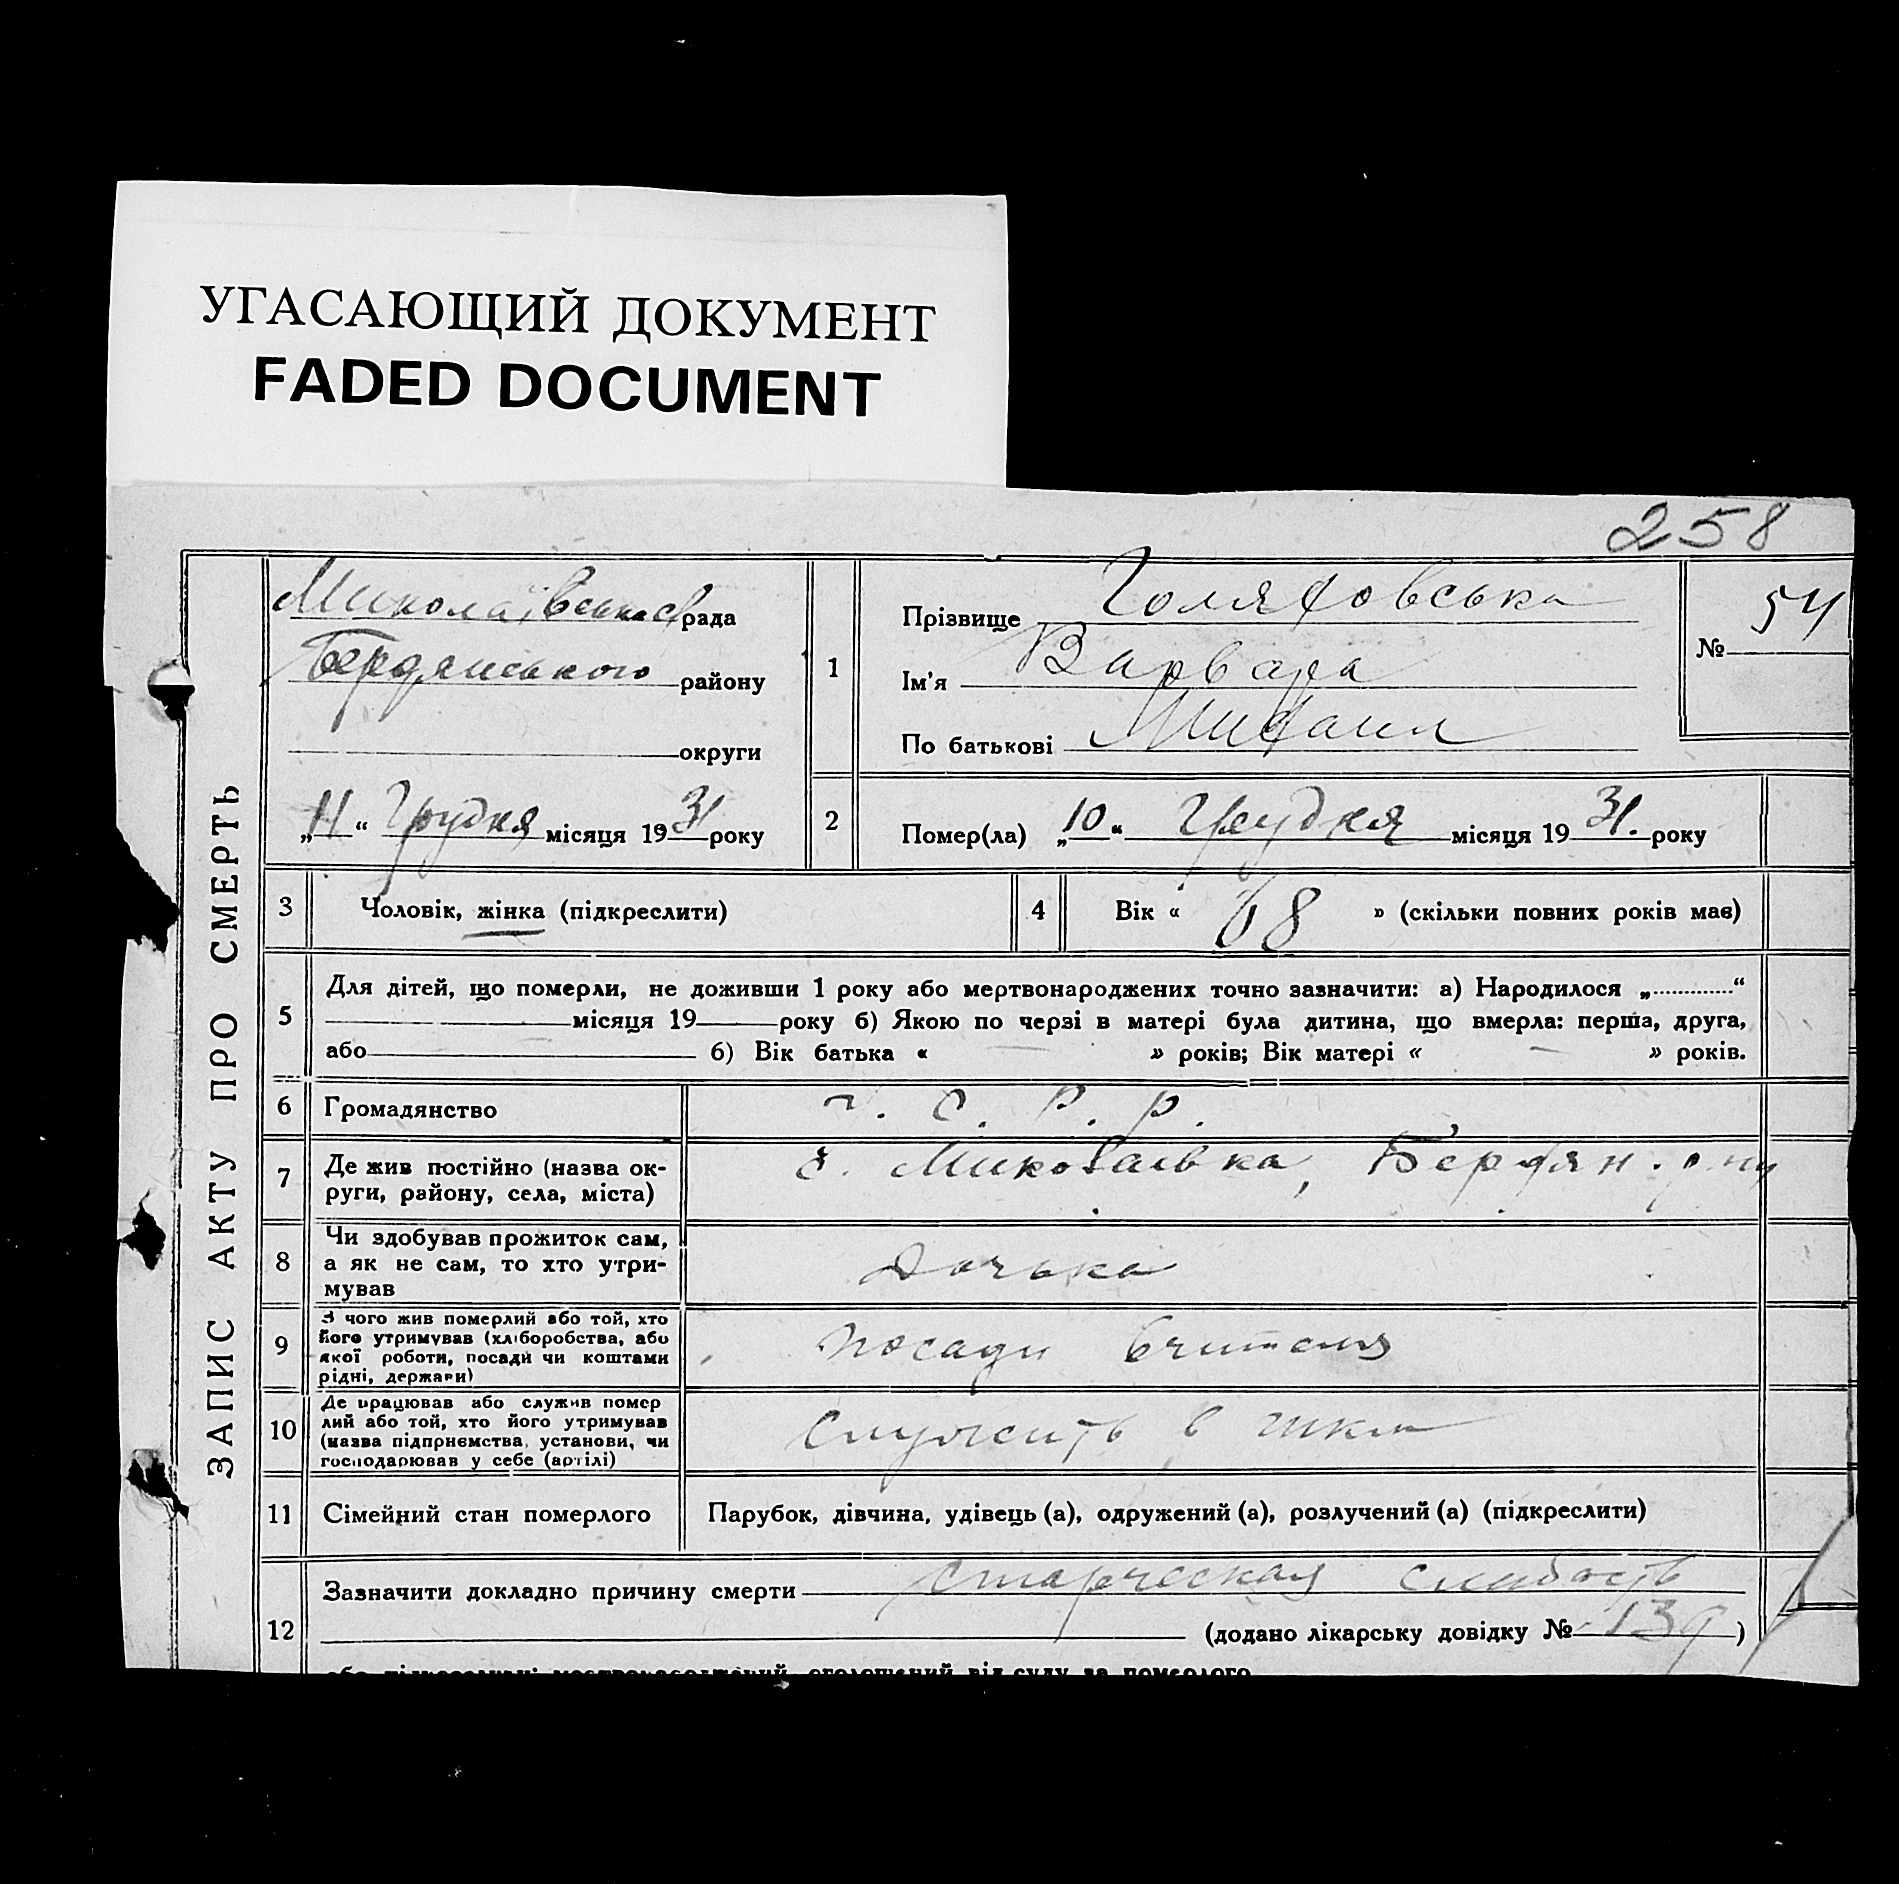 УГАСАЮЩИЙ ДОКУМЕНТ
FADED DOCUMENT
258
ЗАПИС АКТУ ПРО СМЕРТЬ
Миколаївська с/рада
Бердянського району
округи
„11“ Грудня місяця 1931 року
1
Прізвище Голяховська
Ім'я Варвара
По батькові Михаил
№ 54
2
Помер(ла) „10“ Грудня місяця 1931. року
3 Чоловік, жінка (підкреслити)
4 Вік « 68 » (скільки повних років має)
5
Для дітей, що померли, не доживши 1 року або мертвонароджених точно зазначити: а) Народилося „............“
місяця 19 року б) Якою по черзі в матері була дитина, що вмерла: перша, друга,
або б) Вік батька « — » років; Вік матері « — » років.
6 Громадянство
С. Р. Р.
7
Де жив постійно (назва ок-
руги, району, села, міста)
с. Миколаївка, Бердян. р-ну
8
Чи здобував прожиток сам,
а як не сам, то хто утри-
мував
Дочька
9
З чого жив померлий або той, хто
його утримував (хліборобства, або
якої роботи, посади чи коштами
рідні, держави)
посади вчителя
10
Де працював або служив помер
лий або той, хто його утримував
(назва підприємства, установи, чи
господарював у себе (артілі)
служить в
11 Сімейний стан померлого
Парубок, дівчина, удівець (а), одружений (а), розлучений (а) (підкреслити)
12
Зазначити докладно причину смерти старческая слабость
(додано лікарську довідку № 139)